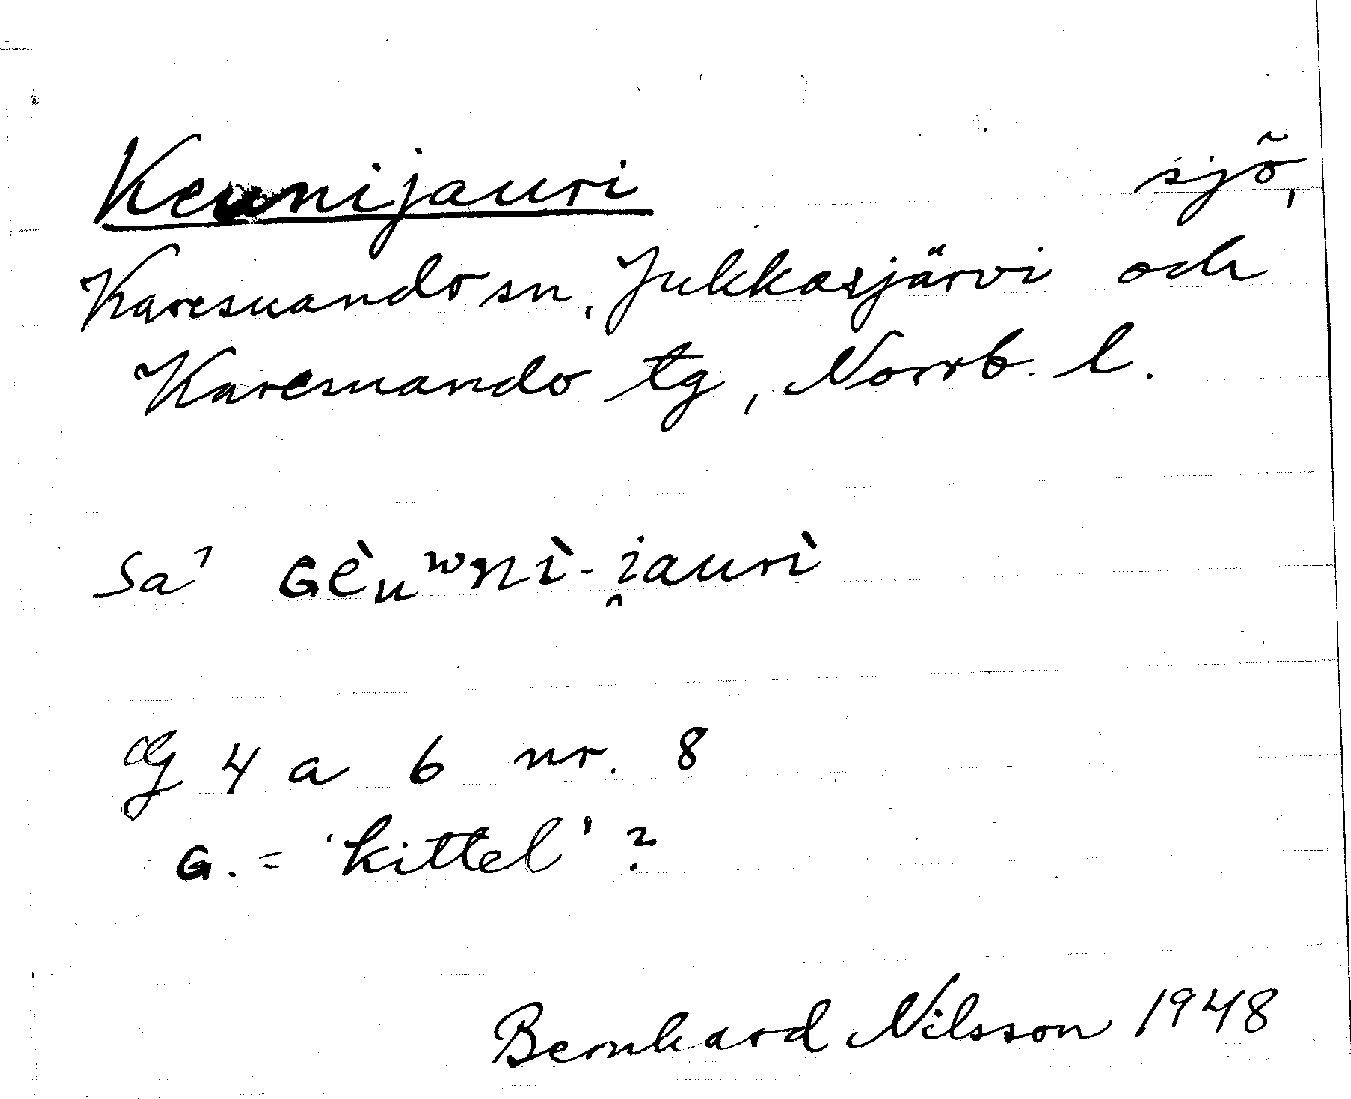 Keunijauri sjö,
Karesuando sn, Jukkasjärvi och
Karesuando tg, Norrb. l.
Sa⁷ ɢèuʷnì-i̯aurì
OG 4 a 6 nr. 8
ɢ. = 'kittel'?
Bernhard Nilsson 1948